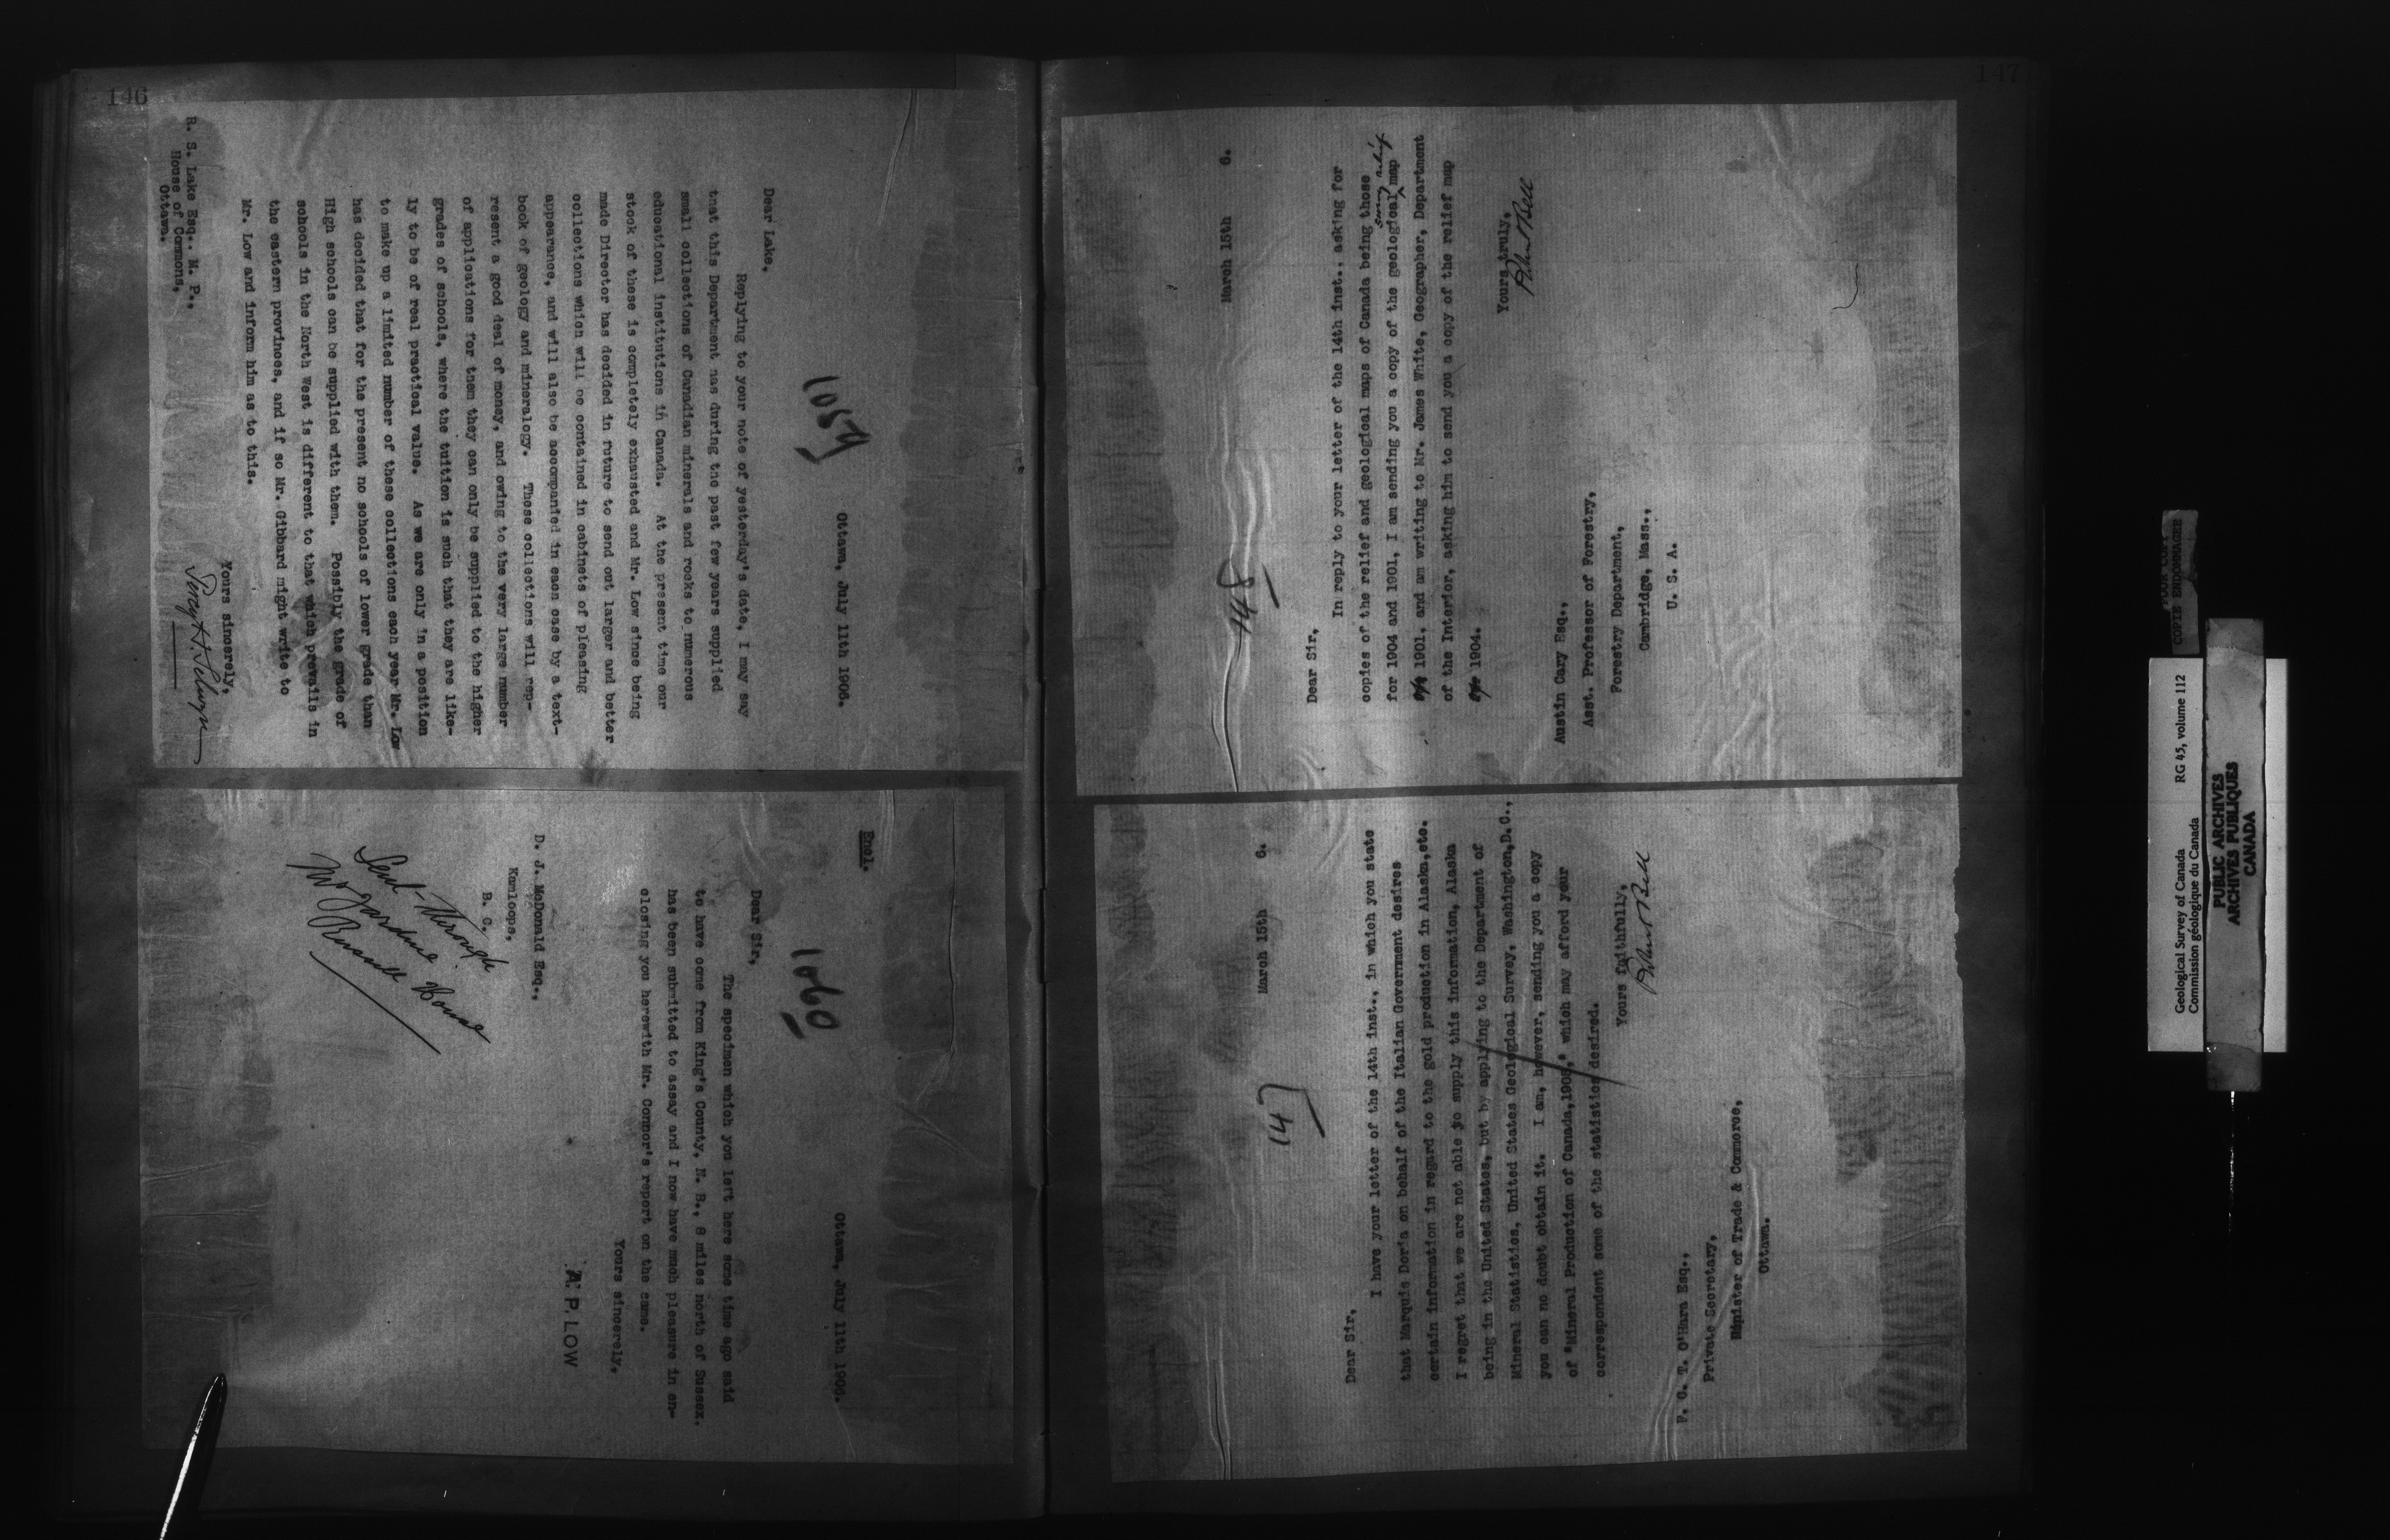 146
1059
Ottawa, July 11th 1906.
Dear Lake,
Replying to your note of yesterday's date, I may say
that this Department has during the past few years supplied
small collections of Canadian minerals and rocks to numerous
educational institutions in Canada. At the present time our
stock of these is completely exhausted and Mr. Low since being
made Director has decided in future to send out larger and better
collections which will be contained in cabinets of pleasing
appearance, and will also be accompanied in each case by a text-
book of geology and mineralogy. These collections will rep-
resent a good deal of money, and owing to the very large number
of applications for them they can only be supplied to the higher
grades of schools, where the tuition is such that they are like-
ly to be of real practical value. As we are only in a position
to make up a limited number of these collections each year Mr. Low
has decided that for the present no schools of lower grade than
High schools can be supplied with them. Possibly the grade of
schools in the North West is different to that which prevails in
the eastern provinces, and if so Mr. Gibbard might write to
Mr. Low and inform him as to this.
Yours sincerely,
Percy H. Selwyn
R. S. Lake Esq.. M. P.,
House of Commons,
Ottawa.
Encl.
1060
Ottawa, July 11th 1906.
Dear Sir,
The specimen which you left here some time ago said
to have come from King's County, N. B., 8 miles north of Sussex.
has been submitted to assay and I now have much pleasure in en-
closing you herewith Mr. Connor's report on the same.
Yours sincerely,
A. P. LOW
D. J. McDonald Esq.,
Kamloops,
B. C.
Sent through
Mr Jardine
Russell House
147
March 15th 6.
548
Dear Sir,
In reply to your letter of the 14th inst., asking for
copies of the relief and geological maps of Canada being those
for 1904 and 1901, I am sending you a copy of the geological map
1901, and am writing to Mr. James White, Geographer, Department
of the Interior, asking him to send you a copy of the relief map
1904.
Yours truly,
Robert Bell
Austin Cary Esq.,
Asst. Professor of Forestry,
Forestry Department,
Cambridge, Mass.,
U. S. A.
March 15th 6.
Dear Sir,
I have your letter of the 14th inst., in which you state
that Marquis Doria on behalf of the Italian Government desires
certain information in regard to the gold production in Alaska,etc.
I regret that we are not able to supply this information, Alaska
being in the United States, but by applying to the Department of
Mineral Statistics, United States Geological Survey, Washington,D.C.,
you can no doubt obtain it. I am, however, sending you a copy
of "Mineral Production of Canada,1905," which may afford your
correspondent some of the statistics desired.
Yours faithfully,
Robert Bell
F. C. T. O'Hara Esq.,
Private Secretary,
Minister of Trade & Commerce,
Ottawa.
POOR COPY
COPIE ENDOMMAGEE
Geological Survey of Canada RG 45, volume 112
Commission géologique du Canada
PUBLIC ARCHIVES
ARCHIVES PUBLIQUES
CANADA